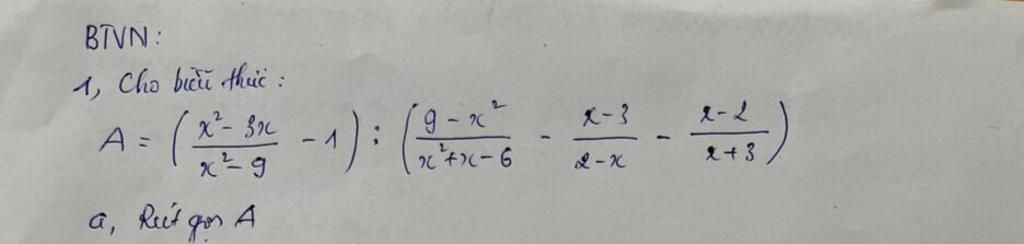 BTVN:
1, Cho biểu thức:
A = ( \frac{x² - 3x}{x² - 9} - 1 ) : ( \frac{9 - x²}{x² + x - 6} - \frac{x - 3}{2 - x} - \frac{x - 2}{x + 3} )
a, Rút gọn A